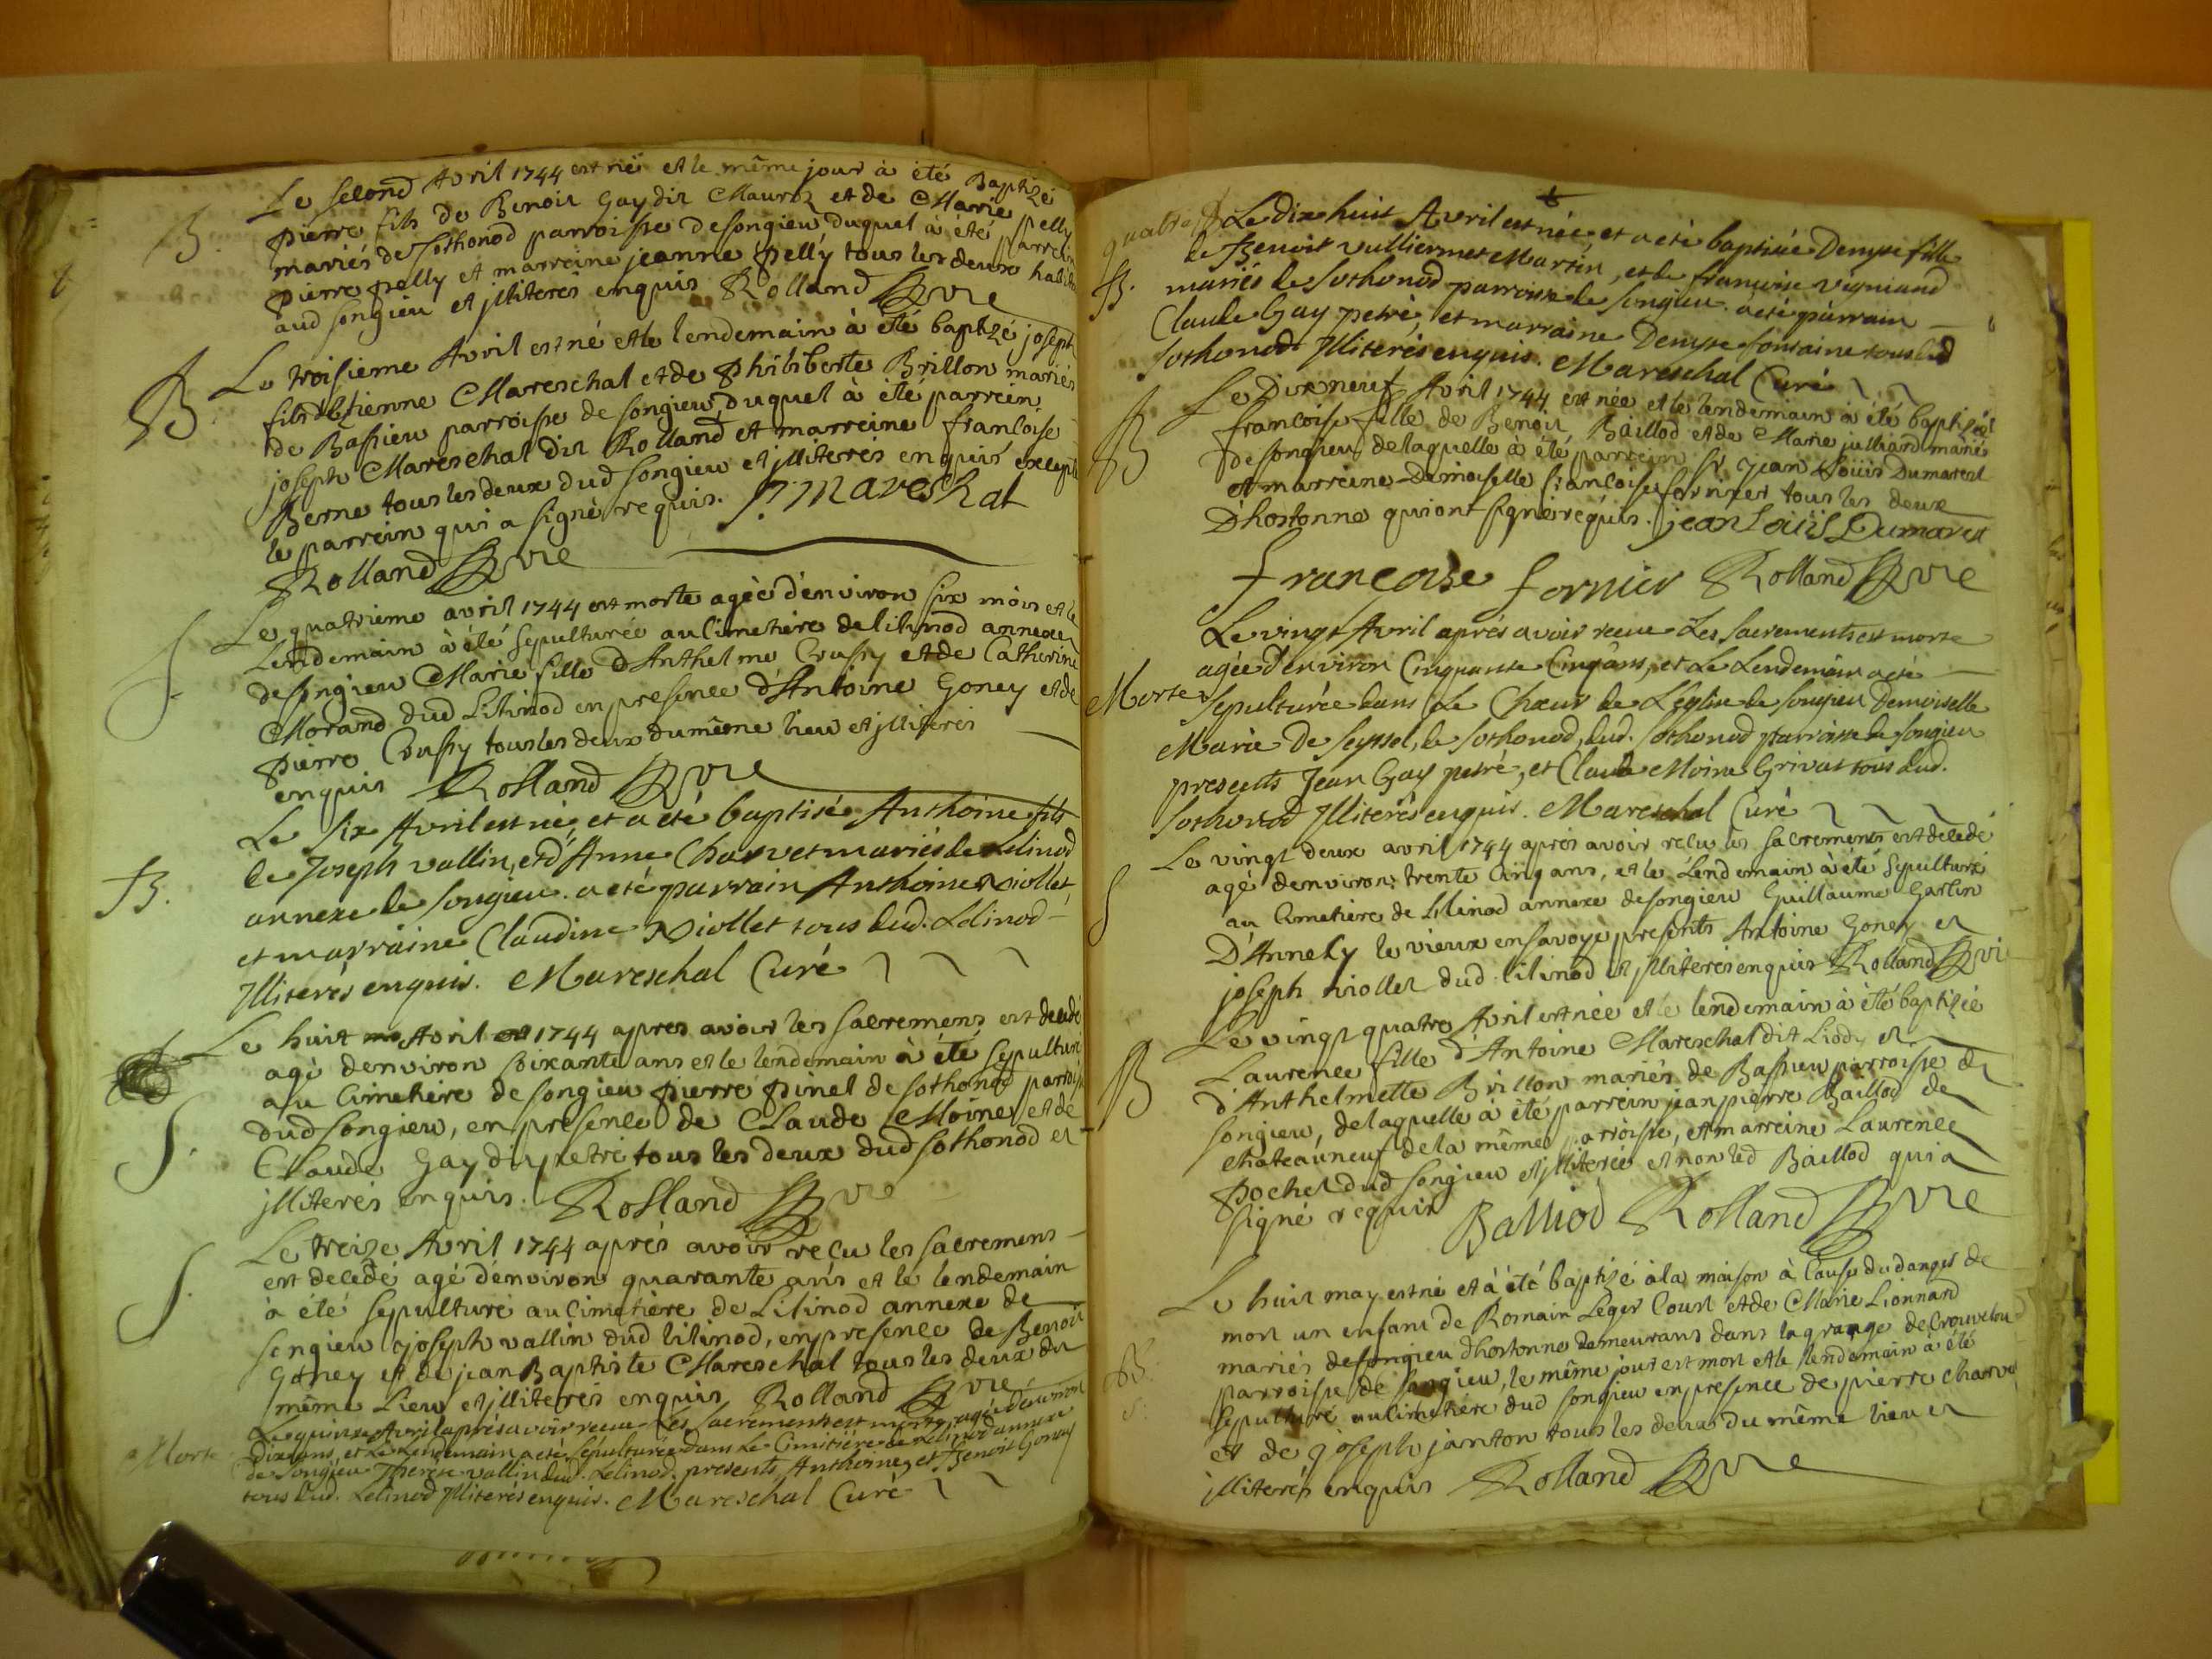 B.
Le second Avril 1744 est né et le même jour à été Baptizé
pierre fils de Benoit Gay dit Mauroz et de Marie pelly
mariés de Sothonod parroisse de songieu duquel à été parrein
pierre pelly et marreine jeanne pelly tous les deux
aud songieu et jlliterés enquis Rolland
B
Le troisieme Avril est né et le lendemain à été baptizé joseph
fils d'Etienne Mareschal et de Philiberte Brillon mariés
de Bassieu parroisse de songieu, duquel à été parrein
joseph Mareschal dit Rolland et marreine francoise
Berne tous les deux dud songieu et jlliterés enquis excepté
le parrein qui a signé requis. J: mareschal
Rolland
S
Le quatrieme avril 1744 est morte agée d'environ six mois et le
Lendemain à été sepulturée au cimetiere de lilinod annexe
de songieu Marie fille d'Anthelme Crussy et de Catherine
Morand dud Lilinod en presence d'Antoine Goney et de
pierre Crussy tous les deux du même lieu et jlliterés
enquis Rolland
B.
Le six Avril est né, et a eté baptisé Anthoine fils
de Joseph vallin, et d'Anne Charvet mariés de Lilinod
annexe de songieu. a eté parrain Anthoine Niollet
et marraine Claudine Niollet tous dud. Lilinod
Jlliterés enquis. Mareschal Curé
S.
Le huit Avril 1744 apres avoir les sacremens est decedé
agé denviron soixante ans et le lendemain à été sepulturé
au cimetiere de songieu pierre pinel de sothonod parroisse
dud songieu, en presence de Claude Moine et de
Claude Gay dit petré tous les deux dud sothonod et
jlliterés enquis. Rolland
S.
Le treize Avril 1744 aprés avoir reçu les sacremens
est decedé agé d'environ quarante ans et le lendemain
à été sepulturé au cimetière de Lilinod annexe de
songieu joseph vallin dud lilinod, en presence de Benoit
Goney et de jean Baptiste Mareschal tous les deux du
même Lieu et jlliterés enquis Rolland
Morte
Le quinze Avril aprés avoir receu Les sacrements est morte, agée d'environ
dix ans, et Le Lendemain a eté sepulturée dans Le Cimitière de Lilinod annexe
de songieu Therese vallin dud. Lelinod. presents Anthoine, et Benoit Goney
tous dud. Lelinod Jlliterés enquis. Mareschal Curé
quatre
B.
Le dix huit Avril est née et a eté baptisée Denyse fille
de Benoit vulliermet Martin, et de francoise vegniand
mariés de Sothonod parroisse de songieu. a eté parrain
Claude Gay petré, et marraine Denyse fontaine tous dud
Sothonod Jlliterés enquis. Mareschal Curé
B
Le Dix neuf Avril 1744 est née et le lendemain à été baptisée
francoise fille de Benoit Baillod et de Marie julliard mariés
de songieu de laquelle à été parrein Sr Jean Loüis Dumarest
et marreine Demoiselle francoise fornier tous les deux
D'hostonne qui ont signé requis. jean Loüis Dumarest
francoise fornier Rolland
Morte
Le vingt Avril aprés avoir receu Les sacrements est morte
agée d'environ Cinquante Cinq ans, et Le Lendemain a eté
sepulturée dans Le Chœur de L'eglise de songieu Demoiselle
Marie De Seyssel, de Sothonod, dud. Sothonod parroisse de songieu
presents Jean Gay petré, et Claude Moine Grivat tous dud.
Sothonod Jlliterés enquis. Mareschal Curé
S
Le vingt deux avril 1744 aprés avoir reçu les sacrements est decedé
agé denviron trente cinq ans, et le Lendemain à été sepulturé
au cimetiere de Lilinod annexe de songieu Guillaume Garlin
D'Annecy le vieux en savoye presents Antoine Goney et
joseph niollet dud lilinod et jlliterés enquis Rolland
B
Le vingt quatre Avril est née et le lendemain à été baptizée
Laurence fille d'Antoine Mareschal dit Liody et
d'Anthelmette Brillon mariés de Bassieu parroisse de
songieu, de laquelle à été parrein jean pierre Baillod de
chateauneuf de la même parroisse, et marreine Laurence
pochet dud songieu et jlliterée et non led Baillod qui a
signé requis Balliod Rolland
B.
S.
Le huit may est né et à été baptizé à la maison à cause du danger de
mort un enfant de Romain Leger Court et de Marie Lionnard
mariés de songieu d'hostonne demeurans dans la grange de
parroisse de songieu, le même jour est mort et le lendemain à été
sepulturé au cimetiére dud songieu en presence de pierre charvet
et de joseph janton tous les deux du même lieu et
jlliterés enquis Rolland